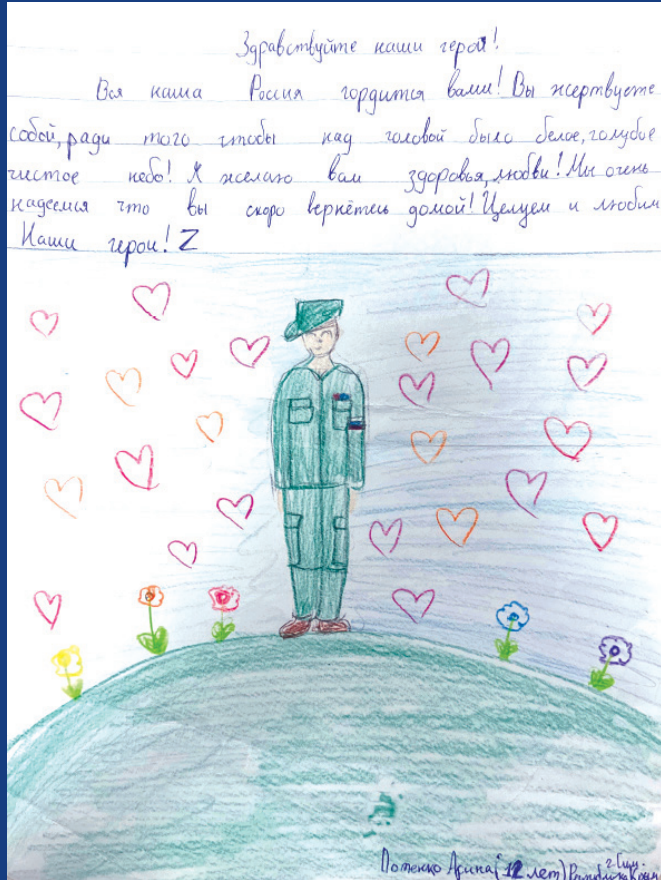 Здравствуйте наши герои!
Вся наша Россия гордится вами! Вы жертвуете
собой, ради того чтобы над головой было белое, голубое
чистое небо! Я желаю вам здоровья, любви! Мы очень
надеемся что вы скоро вернётесь домой! Целуем и любим
Наши герои! Z
Арина (12 лет) Республика